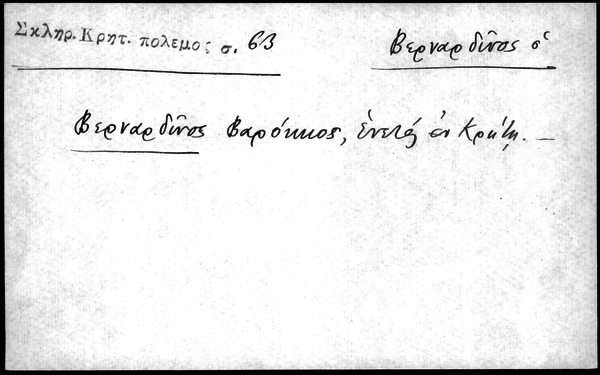 Σκληρ. Κρητ. πολεμος σ. 63
Βερναρδῖνος ὁ
Βερναρδῖνος Βαρόκκιος, ἑνετός ἐν Κρήτῃ. —